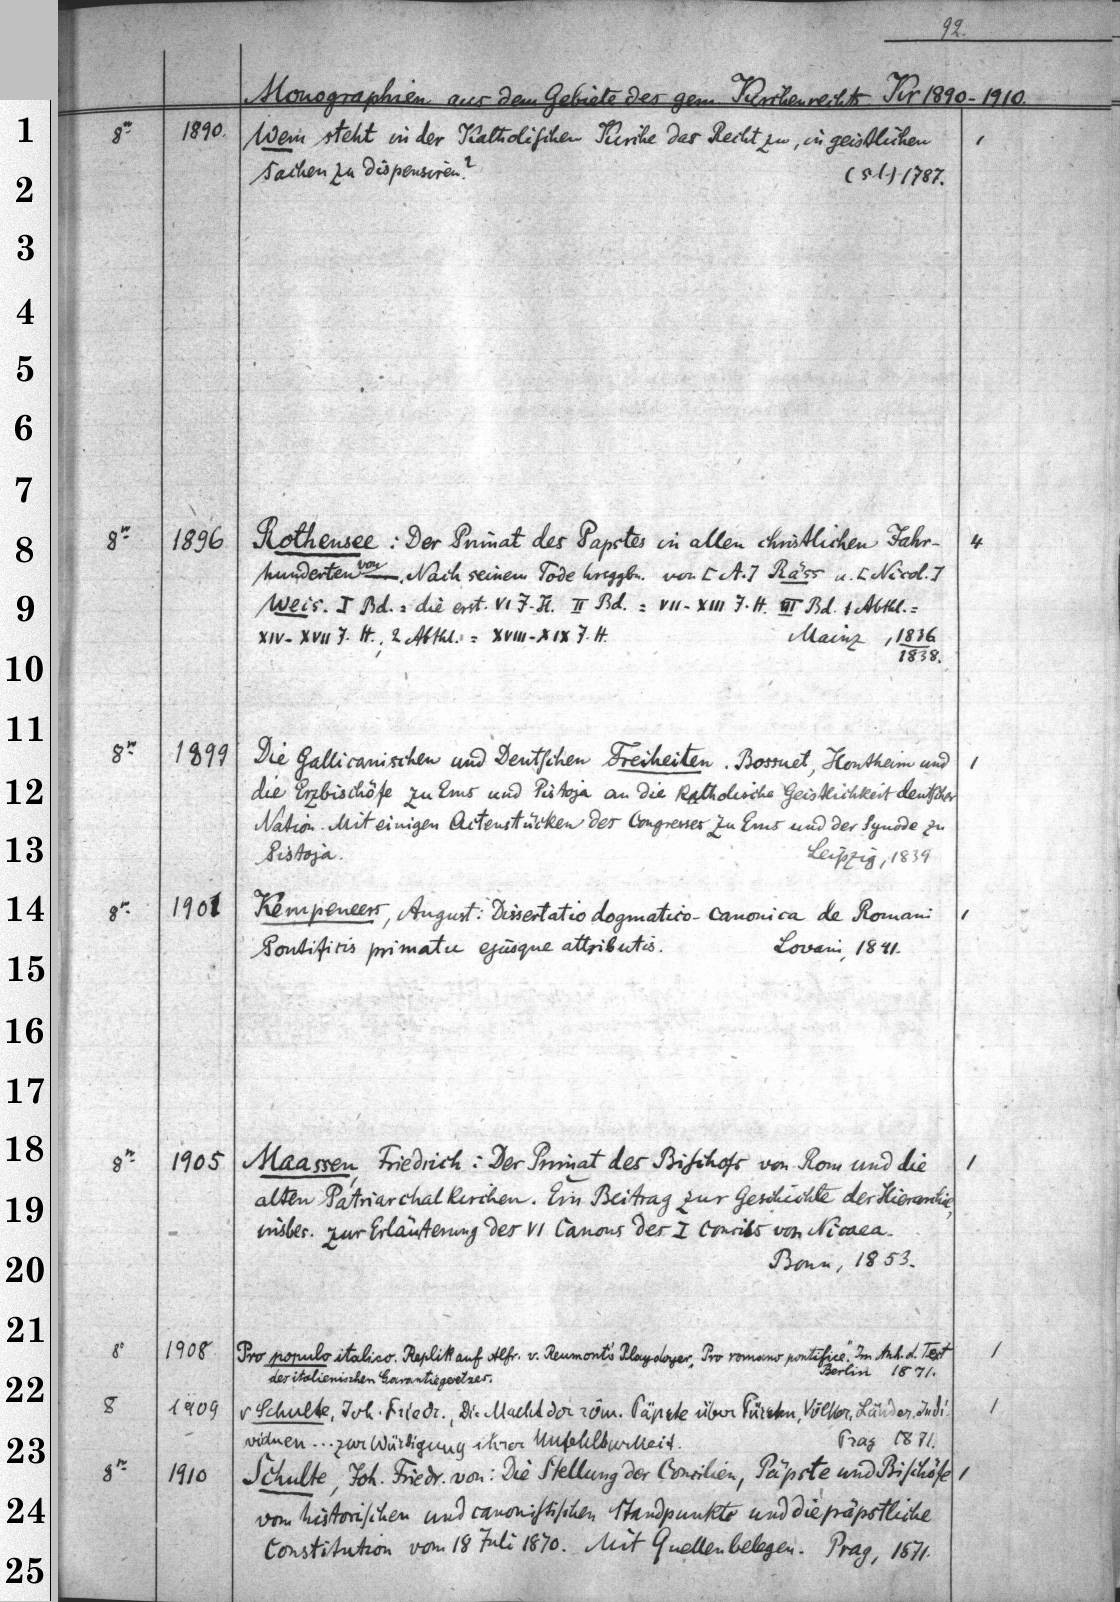 92.
Monographien aus dem Gebiete des gem. Kirchenrechts Kr 1890-1910.
1
2
3
4
5
6
7
8
9
10
11
12
13
14
15
16
17
18
19
20
21
22
23
24
25
8° 1890. Wem steht in der Katholischen Kirche das Recht zu, in geistlichen 1
Sachen zu dispensiren? (s.l.) 1787.
8° 1896 Rothensee : Der Primat des Papstes in allen christlichen Jahr- 4
hunderten von. Nach seinem Tode hrsggbn. von [A.] Räss u. [Nicol.]
Weis. I Bd. = die erst. VI J.H. II Bd. = VII-XIII J.H. III Bd. 1 Abthl. =
XIV-XVII J.H.; 2 Abthl. = XVIII-XIX J.H. Mainz, 1836
1838.
8° 1899 Die Gallicanischen und Deutschen Freiheiten. Bossuet, Hontheim und 1
die Erzbischöfe zu Ems und Pistoja an die katholische Geistlichkeit deutscher
Nation. Mit einigen Actenstücken des Congresses zu Ems und der Synode zu
Pistoja. Leipzig, 1839
8° 1901 Kempeneers, August: Dissertatio dogmatico-canonica de Romani 1
Pontificis primatu ejusque attributis. Lovani, 1841.
8° 1905 Maassen, Friedrich : Der Primat des Bischofs von Rom und die 1
alten Patriarchalkirchen. Ein Beitrag zur Geschichte der Hierarchie,
insbes. zur Erläuterung des VI Canons des I Concils von Nicaea.
Bonn, 1853.
8° 1908 Pro populo italico. Replik auf Alfr. v. Reumont's Playdoyer „Pro romano pontifice." Im Anh. d. Text 1
des italienischen Garantiegesetzes. Berlin 1871.
8 1909 v Schulte, Joh. Friedr., Die Macht der röm. Päpste über Fürsten, Völker, Länder, Indi- 1
viduen ... zur Würdigung ihrer Unfehlbarkeit. Prag 1871.
8° 1910 Schulte, Joh. Friedr. von: Die Stellung der Concilien, Päpste und Bischöfe 1
vom historischen und canonistischen Standpunkte und die päpstliche
Constitution vom 18 Juli 1870. Mit Quellenbelegen. Prag, 1871.